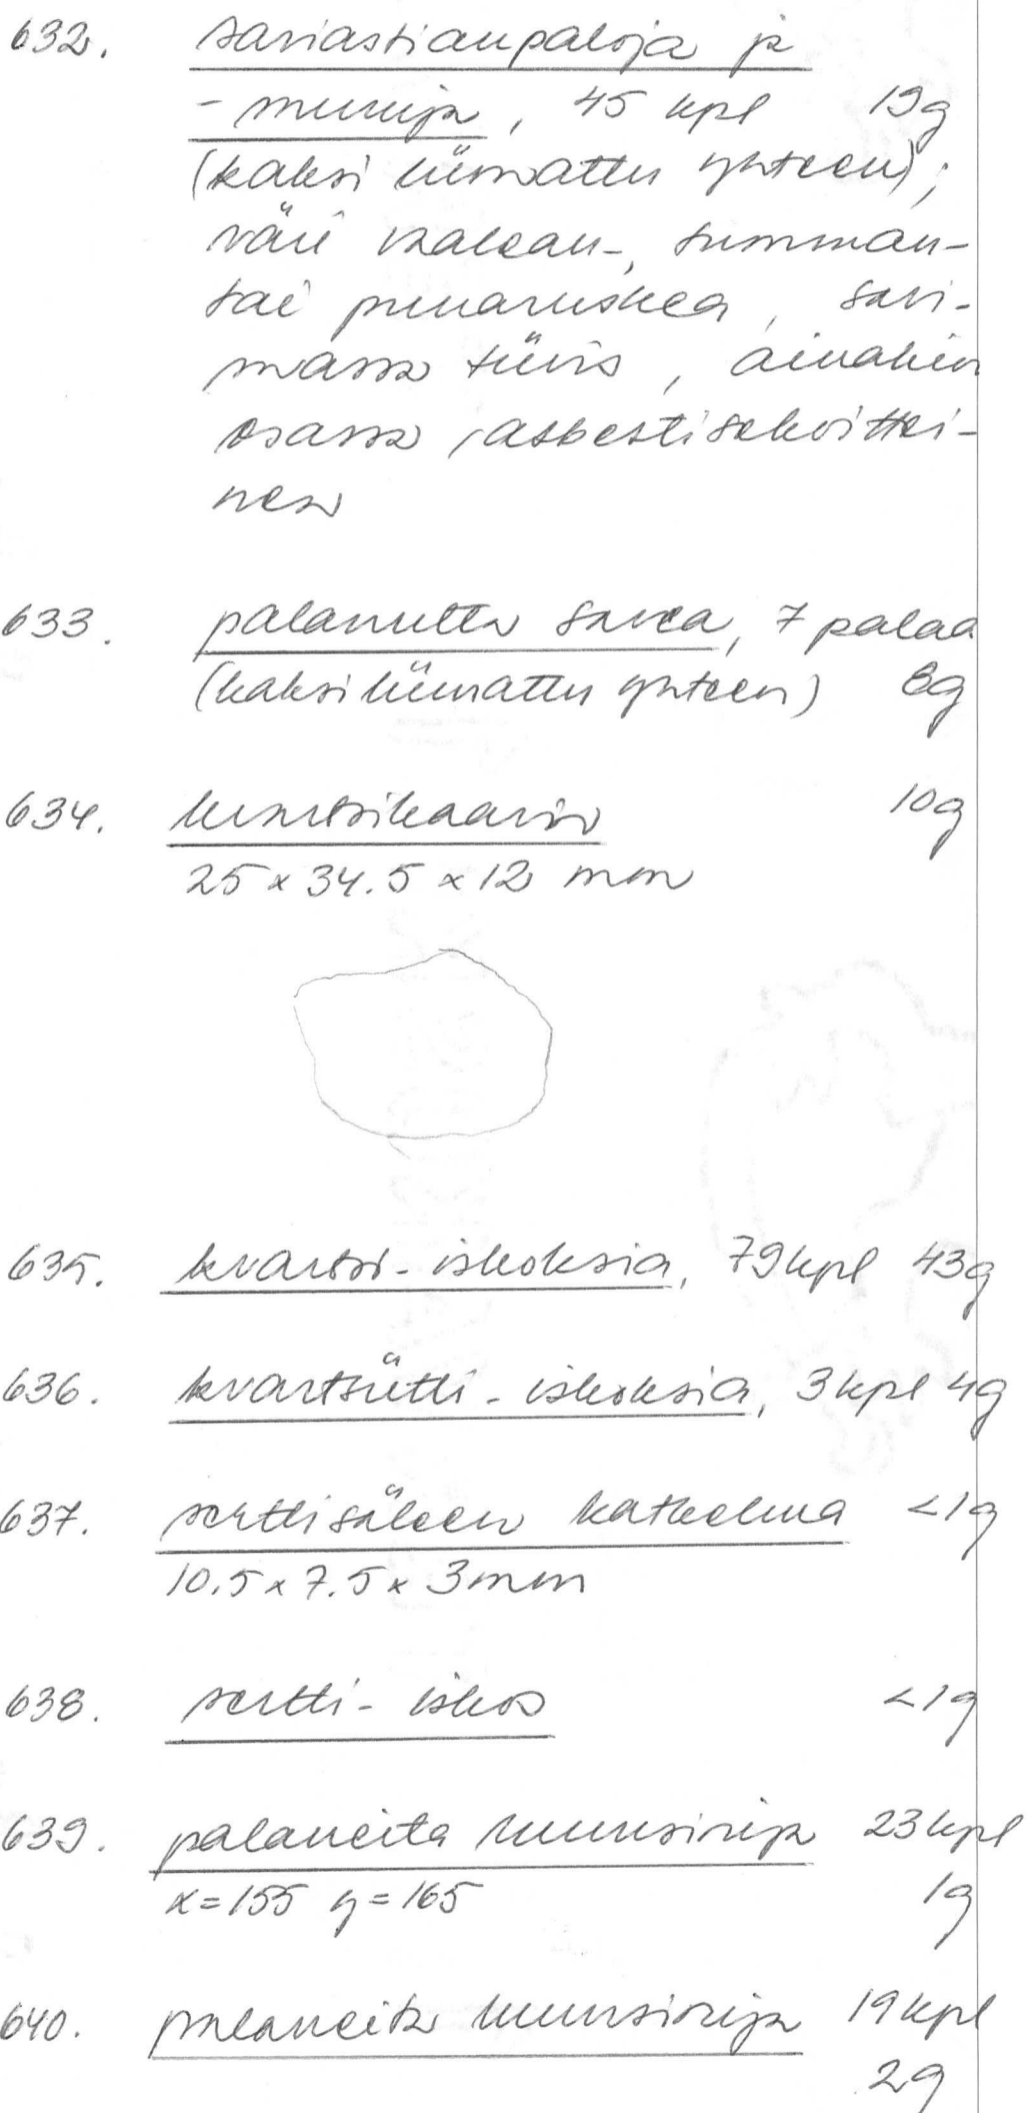 632. saviastianpaloja ja
- muruja, 45 kpl 19g
(kaksi liimattu yhteen);
väri vaalean-, tumman-
tai punaruskea, savi-
massa tiivis, ainakin
osassa asbestisekoittei-
nen
633. palanutta savea, 7 palaa
(kaksi liimattu yhteen) 6g
634. kvartsikaavin 10g
25 x 34.5 x 12 mm
635. kvartsi-iskoksia, 79 kpl 43g
636. kvartsiitti-iskoksia, 3 kpl 4g
637. serttisäleen katkelma <1g
10.5 x 7.5 x 3 mm
638. sertti-iskos <1g
639. palaneita luunsiruja 23 kpl
x=155 y=165 1g
640. palaneita luunsiruja 19 kpl
2g